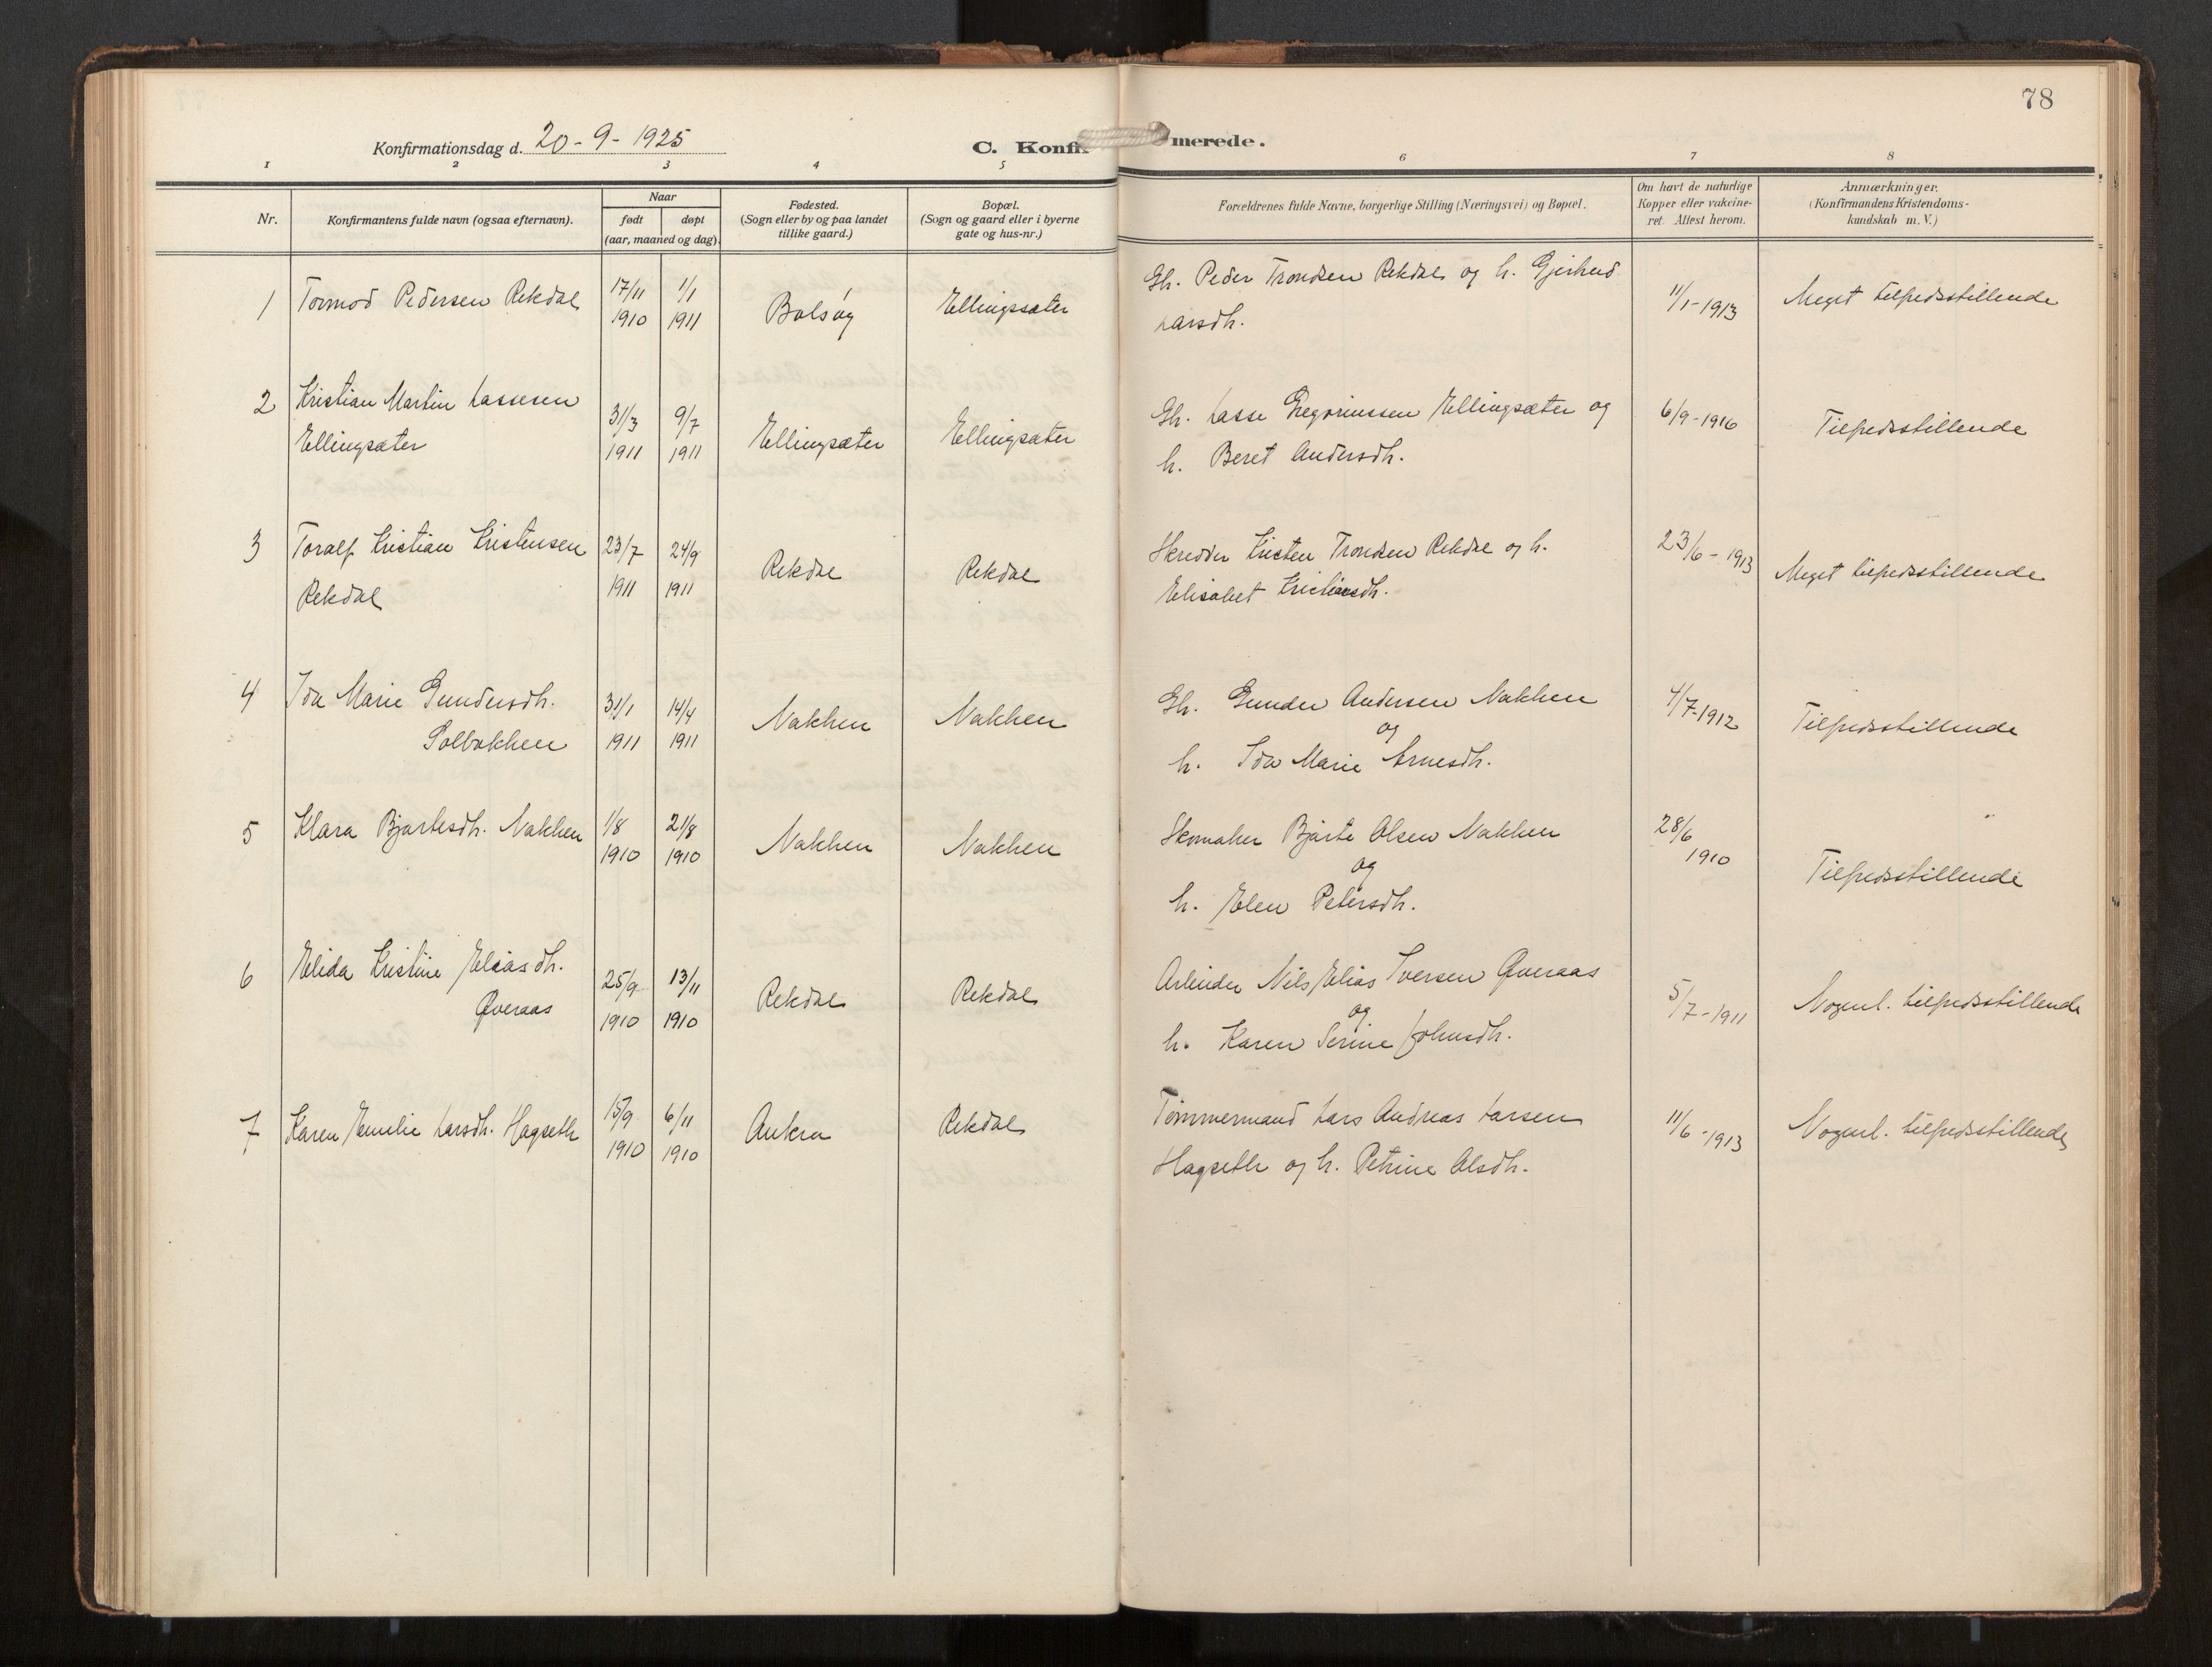 78
Konfirmationsdag d. 20-9-1925
C. Konfirmerede.
1 2 3 4 5 6 7 8
Nr.
Konfirmantens fulde navn (ogsaa efternavn).
Naar
født døpt
(aar, maaned og dag)
Fødested.
(Sogn eller by og paa landet
tillike gaard.)
Bopæl.
(Sogn og gaard eller i byerne
gate og hus-nr.)
Forældrenes fulde Navne, borgerlige Stilling (Næringsvei) og Bopæl.
Om havt de naturlige
Kopper eller vakcine-
ret. Attest herom.
Anmærkninger.
(Konfirmandens Kristendoms-
kundskab m. V.)
1 Tormod Pedersen Rekdal 17/11 1910 1/1 1911 Bolsøy Ellingssæter Gh. Peder Trondsen Rekdal og h. Gjertrud
Larsdh. 11/1-1913 Meget tilfredsstillende
2 Kristian Martin Lassesen
Ellingsæter 31/3 1911 9/7 1911 Ellingsæter Ellingsæter Gh. Lasse Gregoriussen Ellingsæter og
h. Beret Andersdh. 6/9-1916 Tilfredsstillende
3 Toralf Kristian Kristensen
Rekdal 23/7 1911 24/9 1911 Rekdal Rekdal Skredder Kristen Trondsen Rekdal og h.
Elisabet Kristinesdh. 23/6-1913 Meget tilfredsstillende
4 Ida Marie Gundersdh.
Solbakken 31/1 1911 14/4 1911 Nakken Nakken Gh. Gunder Andersen Nakken
og
h. Ida Marie Arnesdh. 4/7-1912 Tilfredsstillende
5 Klara Bjartesdh. Nakken 1/8 1910 21/8 1910 Nakken Nakken Skomaker Bjarte Olsen Nakken
og
h. Elen Petersdh. 28/6 1910 Tilfredsstillende
6 Elida Kristine Eliasdh.
Øveraas 25/9 1910 13/11 1910 Rekdal Rekdal Arbeider Nils Elias Iversen Øveraas
og
h. Karen Serine Johnsdh. 5/7-1911 Nogenl. tilfredsstillende
7 Karen Emelie Larsdh. Hagseth 15/9 1910 6/11 1910 Aukra Rekdal Tømmermand Lars Andreas Larsen
Hagseth og h. Petrine Olsdh. 11/6-1913 Nogenl. tilfredsstillende